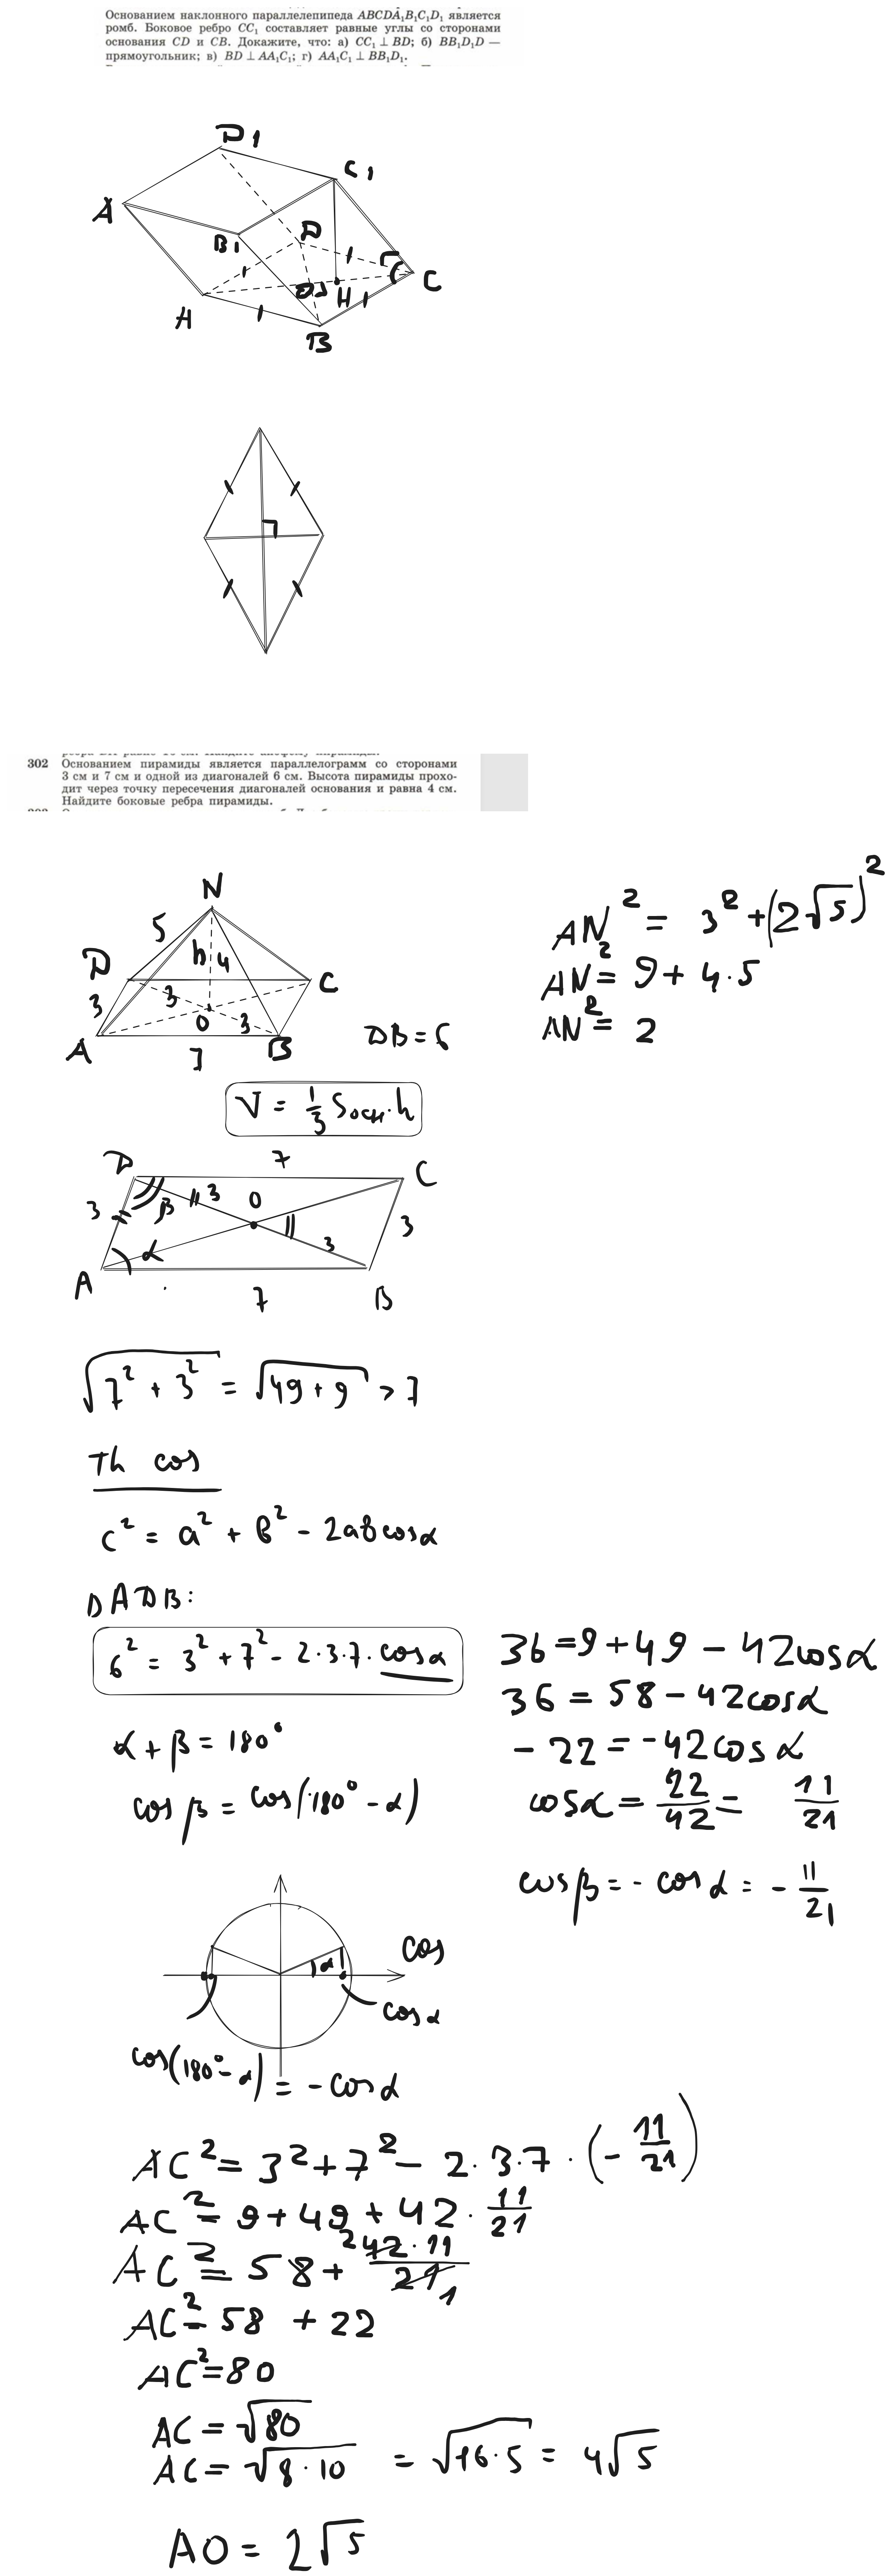 Основанием наклонного параллелепипеда ABCDA₁B₁C₁D₁ является
ромб. Боковое ребро CC₁ составляет равные углы со сторонами
основания CD и CB. Докажите, что: а) CC₁ ⊥ BD; б) BB₁D₁D —
прямоугольник; в) BD ⊥ AA₁C₁; г) AA₁C₁ ⊥ BB₁D₁.
D1
C1
A
B1
D
O
H
C
A
B
302 Основанием пирамиды является параллелограмм со сторонами
3 см и 7 см и одной из диагоналей 6 см. Высота пирамиды прохо-
дит через точку пересечения диагоналей основания и равна 4 см.
Найдите боковые ребра пирамиды.
N
5
h 4
D
C
3
3
O
3
A
7
B
DB = 6
AN² = 3² + (2√5)²
AN² = 9 + 4·5
AN² = 2
V = 1/3 Sосн·h
D 7 C
3 β 3 O
α 3 3
A 7 B
√(7² + 3²) = √(49 + 9) > 7
Th cos
c² = a² + b² - 2ab cosα
ΔADB:
6² = 3² + 7² - 2·3·7·cosα
36 = 9 + 49 - 42cosα
36 = 58 - 42cosα
-22 = -42cosα
cosα = 22/42 = 11/21
α + β = 180°
cosβ = cos(180° - α)
cosβ = - cosα = - 11/21
cos
α
cosα
cos(180° - α) = - cosα
AC² = 3² + 7² - 2·3·7·(- 11/21)
AC² = 9 + 49 + 42 · 11/21
AC² = 58 + 2 42·11/21 1
AC² = 58 + 22
AC² = 80
AC = √80
AC = √(8·10) = √(16·5) = 4√5
AO = 2√5